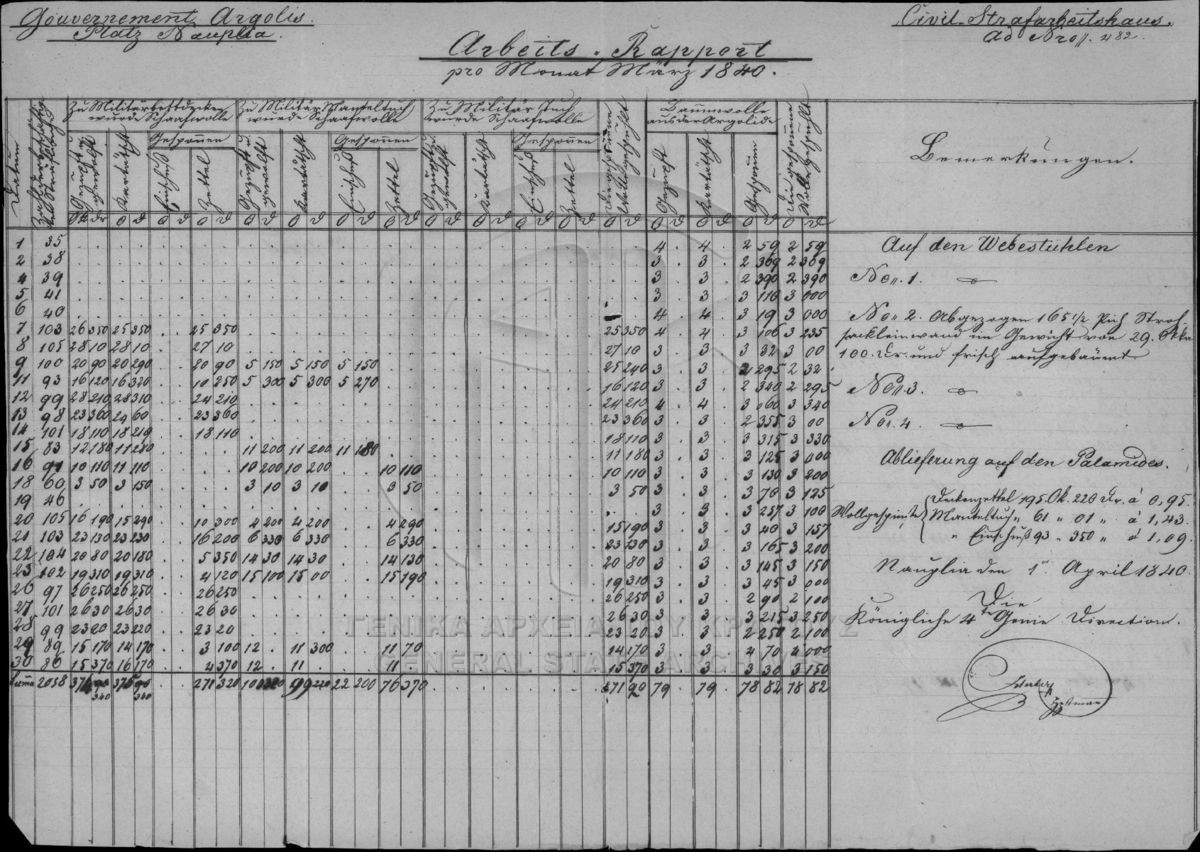 Gouvernement Argolis.
Platz Nauplia.
Civil-Strafarbeitshaus.
ad Nro 482.
Arbeits-Rapport
pro Monat März 1840.
Datum
Zu Militärbettdecken wurde Schaafwolle
Zu Militär Manteltuch wurde Schaafwolle
Zu Militär Tuch wurde Schaafwolle
Baumwolle aus der Argolide
Bemerkungen.
Kartätscht
Gesponnen
Einschuß
Zettel
Kartätscht
Gesponnen
Einschuß
Zettel
Kartätscht
Gesponnen
Einschuß
Zettel
Kartätscht
Gesponnen
1 35 4 4 2 59 2 59
2 38 3 3 2 369 2 369
4 39 3 3 2 390 2 390
5 41 3 3 3 116 3 000
6 40 4 4 3 19 3 000
7 103 26 350 25 350 25 350 25 350 4 4 3 106 3 235
8 105 28 10 28 10 27 10 27 10 3 3 3 32 3 00
9 100 20 90 20 290 5 150 5 150 5 150 25 240 3 3 2 295 2 32
11 93 16 120 16 320 10 250 5 300 5 300 5 270 16 120 3 3 2 340 2 295
12 99 28 210 28 310 24 210 24 210 4 4 3 060 3 340
13 98 23 360 23 360 23 360 3 3 2 355 3 00
14 101 18 110 18 210 18 110 18 110 3 3 3 315 3 330
15 83 11 200 11 200 11 180 11 180 3 3 3 125 3 000
16 10 110 11 110 10 200 10 200 10 110 10 110 3 3 3 130 3 200
18 60 3 50 3 150 3 10 3 10 3 50 3 50 3 3 3 70 3 125
19 46 3 3 3 257 3 100
20 105 16 190 15 290 10 300 4 200 4 200 4 290 15 190 3 3 3 40 3 157
21 103 23 130 23 230 16 200 6 330 6 330 6 330 23 130 3 3 3 165 3 200
22 104 20 80 20 180 5 350 14 30 14 30 14 130 20 80 3 3 3 145 3 150
23 102 19 310 19 310 4 120 15 100 15 00 15 190 19 310 3 3 3 45 3 000
26 97 26 250 26 250 26 250 26 250 3 3 2 90 2 100
27 101 26 30 26 30 26 30 26 30 3 3 3 215 3 250
28 99 23 20 23 220 23 20 23 20 3 3 2 250 2 100
29 89 15 170 14 170 3 100 12 11 300 11 70 14 170 3 3 4 70 4 000
30 86 15 370 16 170 4 370 12 11 11 15 370 3 3 3 30 3 150
Summa 2038 271 320 22 200 76 370 79 79 78 82 78 82
Auf den Webestühlen
No 1.
No 2. Abgezogen 165 1/2 Pich Stroh
sackleinwand im Gewicht von 29. Okka
100. Dr. und frisch aufgebäumt
No 3.
No 4.
Ablieferung auf den Palamides.
Deckenzettel 195 Ok. 220 Dr. à 0,95.
Wollgespinste Manteltuch 61 " 01 " à 1,43.
" Einschuß 93 " 350 " à 1,09.
Nauplia den 1ten April 1840.
Die
Königliche 4te Genie Direction.
ΓΕΝΙΚΑ ΑΡΧΕΙΑ ΤΟΥ ΚΡΑΤΟΥΣ
GENERAL STATE ARCHIVES